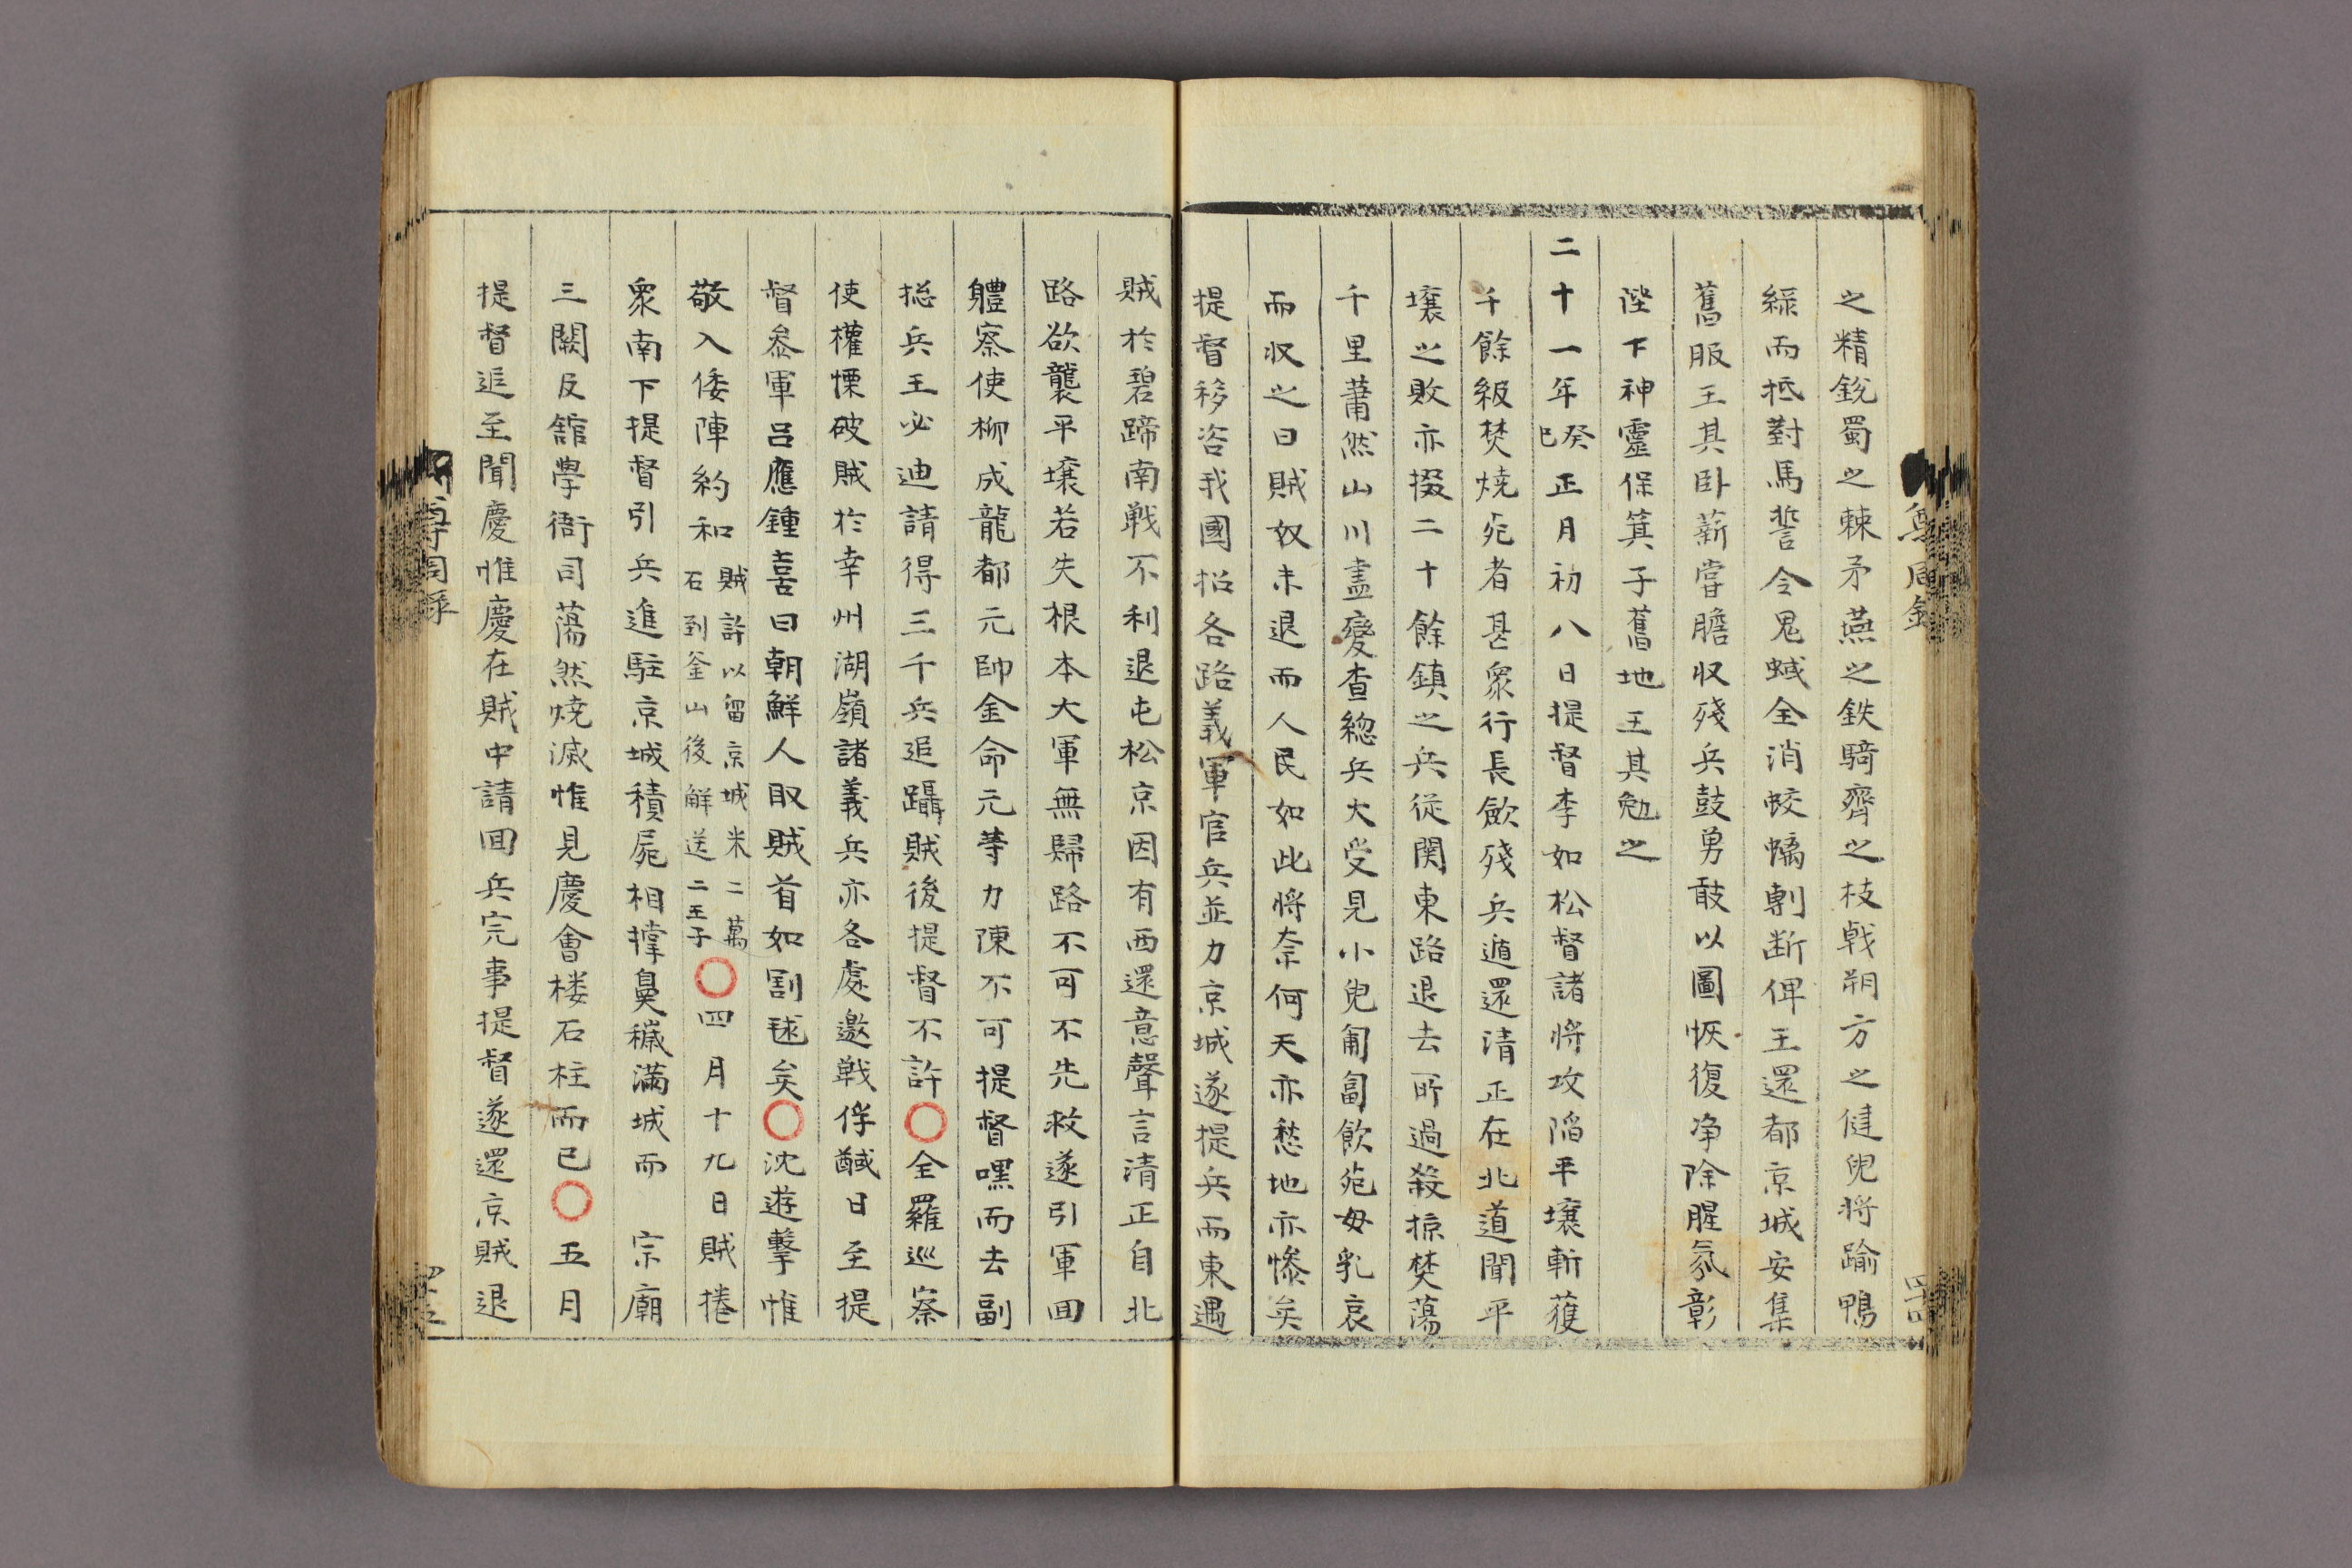 之精銳蜀之棘矛燕之鉄騎齊之枝戟朔方之健兒將踰鴨
綠而抵對馬誓令鬼蜮全消蛟螭剸断俾王還都京城安集
舊服王其卧薪嘗膽収殘兵鼓勇敢以圖恢復净除腥氛彰
陛下神靈保箕子舊地王其勉之
二十一年癸巳正月初八日提督李如松督諸將攻陷平壤斬獲
千餘級焚燒死者甚衆行長歛殘兵遁還清正在北道聞平
壤之敗亦掇二十餘鎮之兵從関東路退去所過殺掠焚蕩
千里蕭然山川盡變查緫兵大受見小兒匍匐飲死母乳哀
而収之曰賊奴未退而人民如此將奈何天亦愁地亦慘矣
提督移咨我國招各路義軍官兵並力京城遂提兵而東遇
賊於碧蹄南戦不利退屯松京因有西還意聲言清正自北
路欲襲平壤若失根本大軍無歸路不可不先救遂引軍回
軆察使柳成龍都元帥金命元等力陳不可提督嘿而去副
捴兵王必迪請得三千兵追躡賊後提督不許〇全羅巡察
使權慄破賊於幸州湖嶺諸義兵亦各處邀戦俘馘日至提
督叅軍吕應鍾喜曰朝鮮人取賊首如割毬矣〇沈遊擊惟
敬入倭陣約和賊許以留京城米二萬石到釜山後解送二王子〇四月十九日賊捲
衆南下提督引兵進駐京城積屍相撑臭穢滿城而 宗廟
三闕及舘學衙司蕩然燒滅惟見慶會楼石柱而已〇五月
提督追至聞慶惟慶在賊中請回兵完事提督遂還京賊退